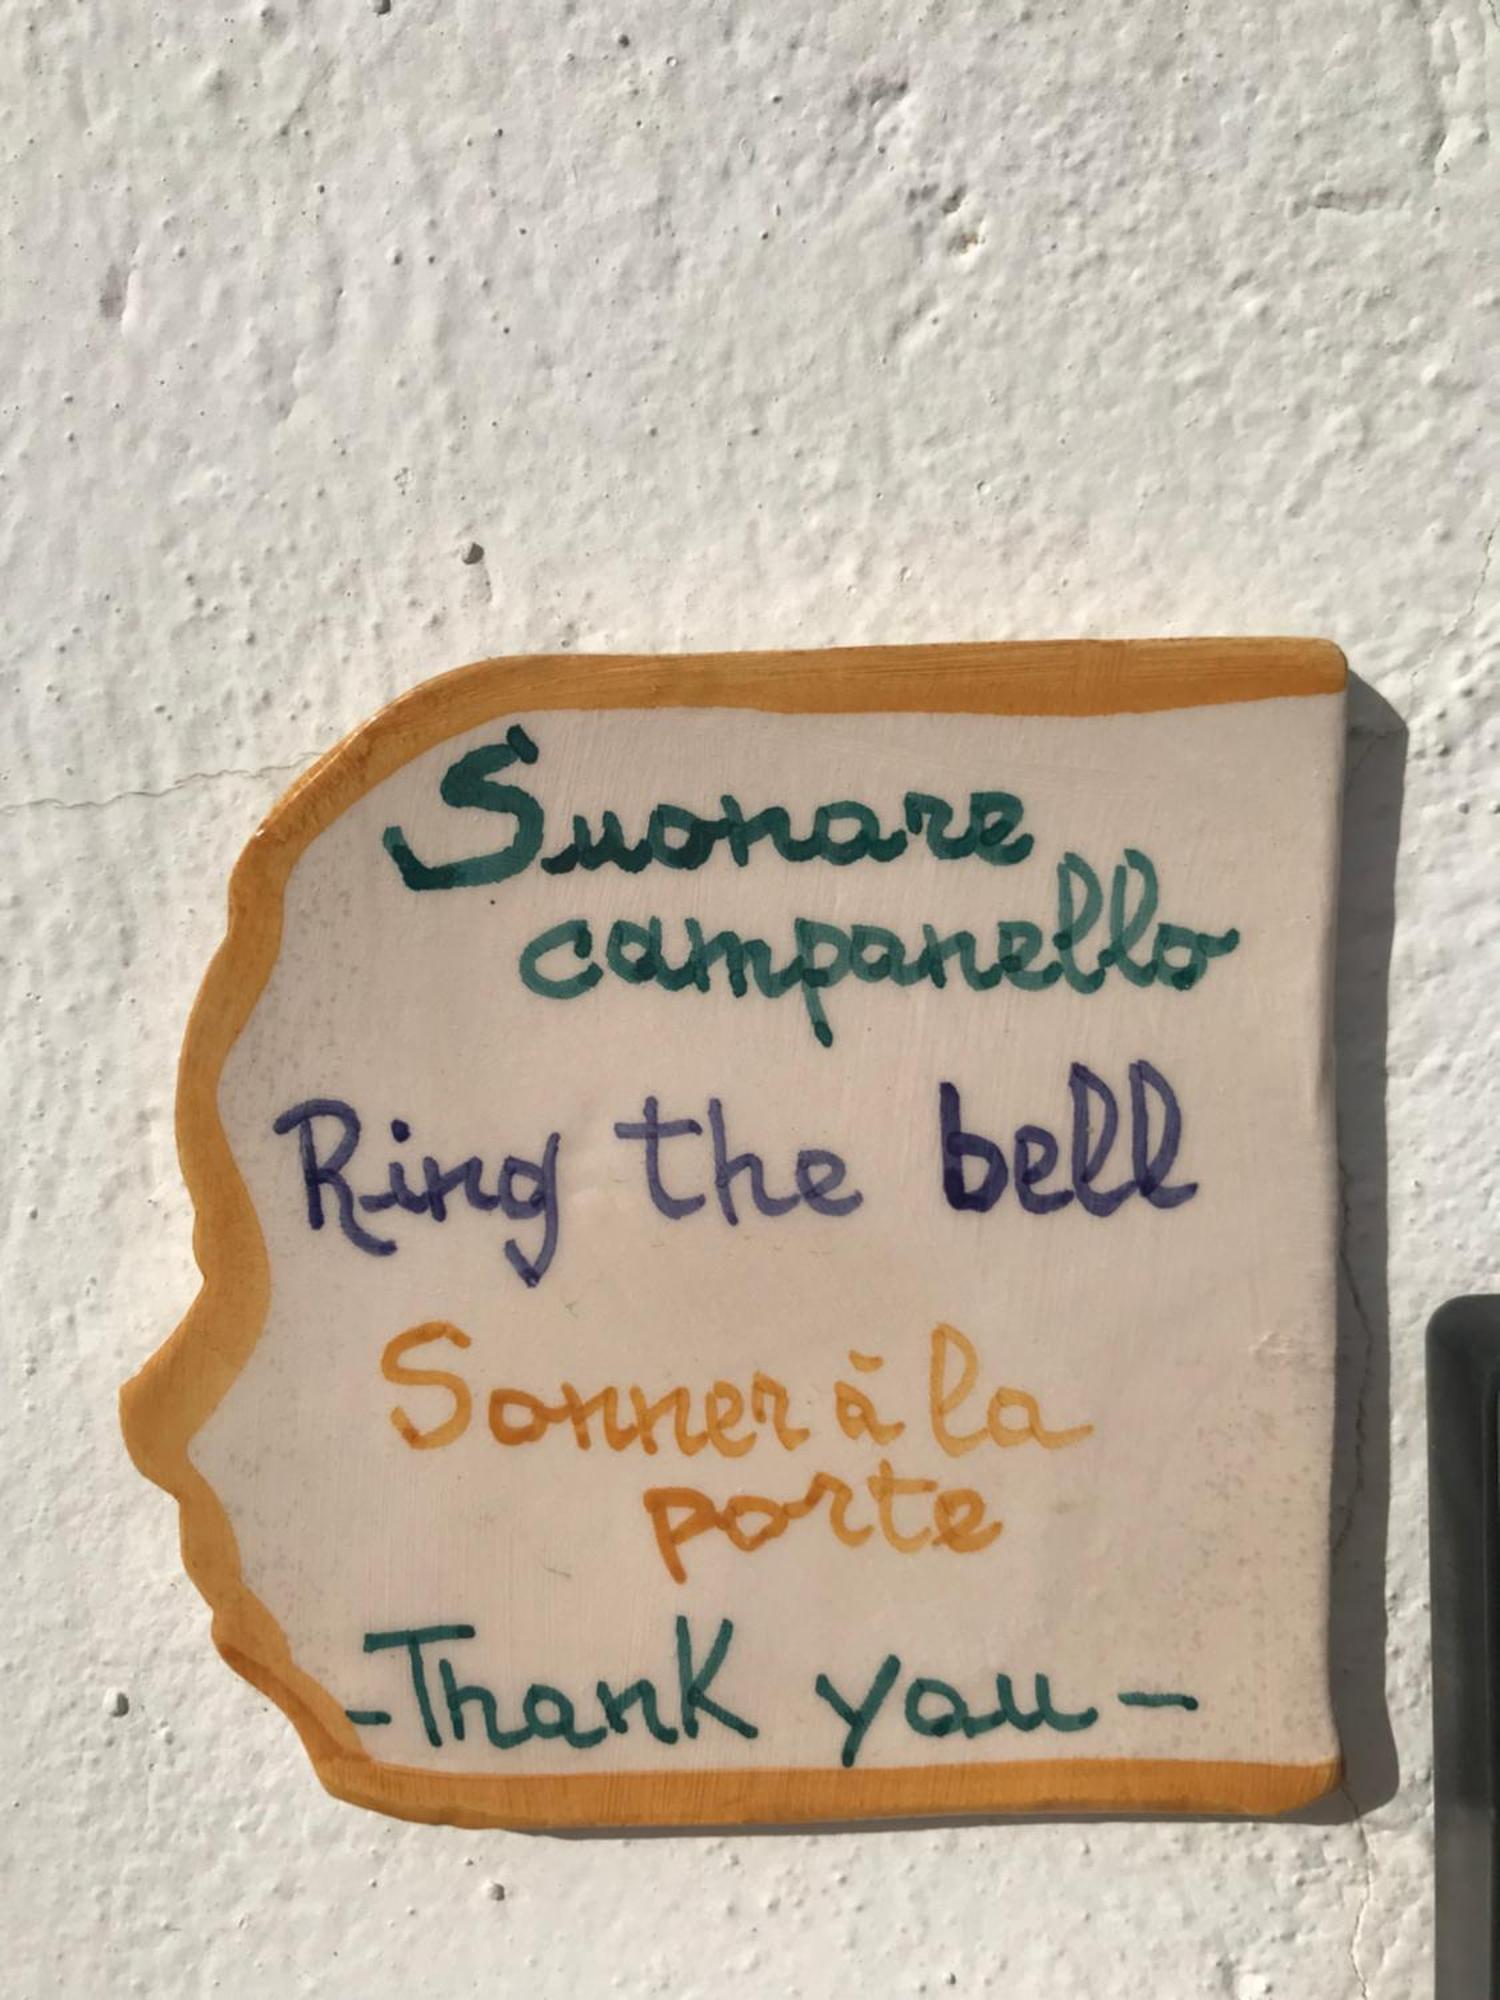 Suonare
campanello
Ring the bell
Sonner à la
porte
-Thank you-